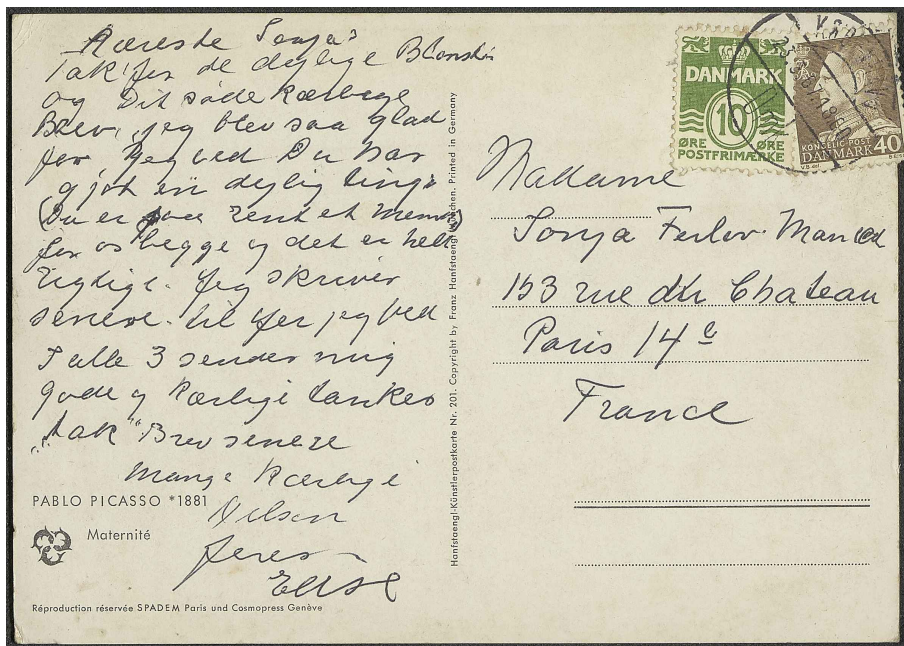 Kæreste Sonja,
Tak for de dejlige
og Dit søde kærlige
Brev, jeg blev saa glad
for jeg ved Du har
gjort en dejlig ting
(Du er jo rent et
for os begge og det er helt
rigtigt. Jeg skriver
senere til for jeg ved
I alle 3 sender mig
gode og kærlige tanker
"tak" Brev senere
Mange kærlige
Hilsen
Jeres
Elise
PABLO PICASSO *1881
Maternité
Réproduction réservée SPADEM Paris und Cosmopress Genève
Hanfstaengl-Künstlerpostkarte Nr. 201. Copyright by Franz Hanfstaengl München. Printed in Germany
DANMARK
10
ØRE ØRE
POSTFRIMÆRKE
KONGELIG POST
DANMARK 40
Madame
Sonja Ferlov Mancoba
153 rue du Chateau
Paris 14e
France